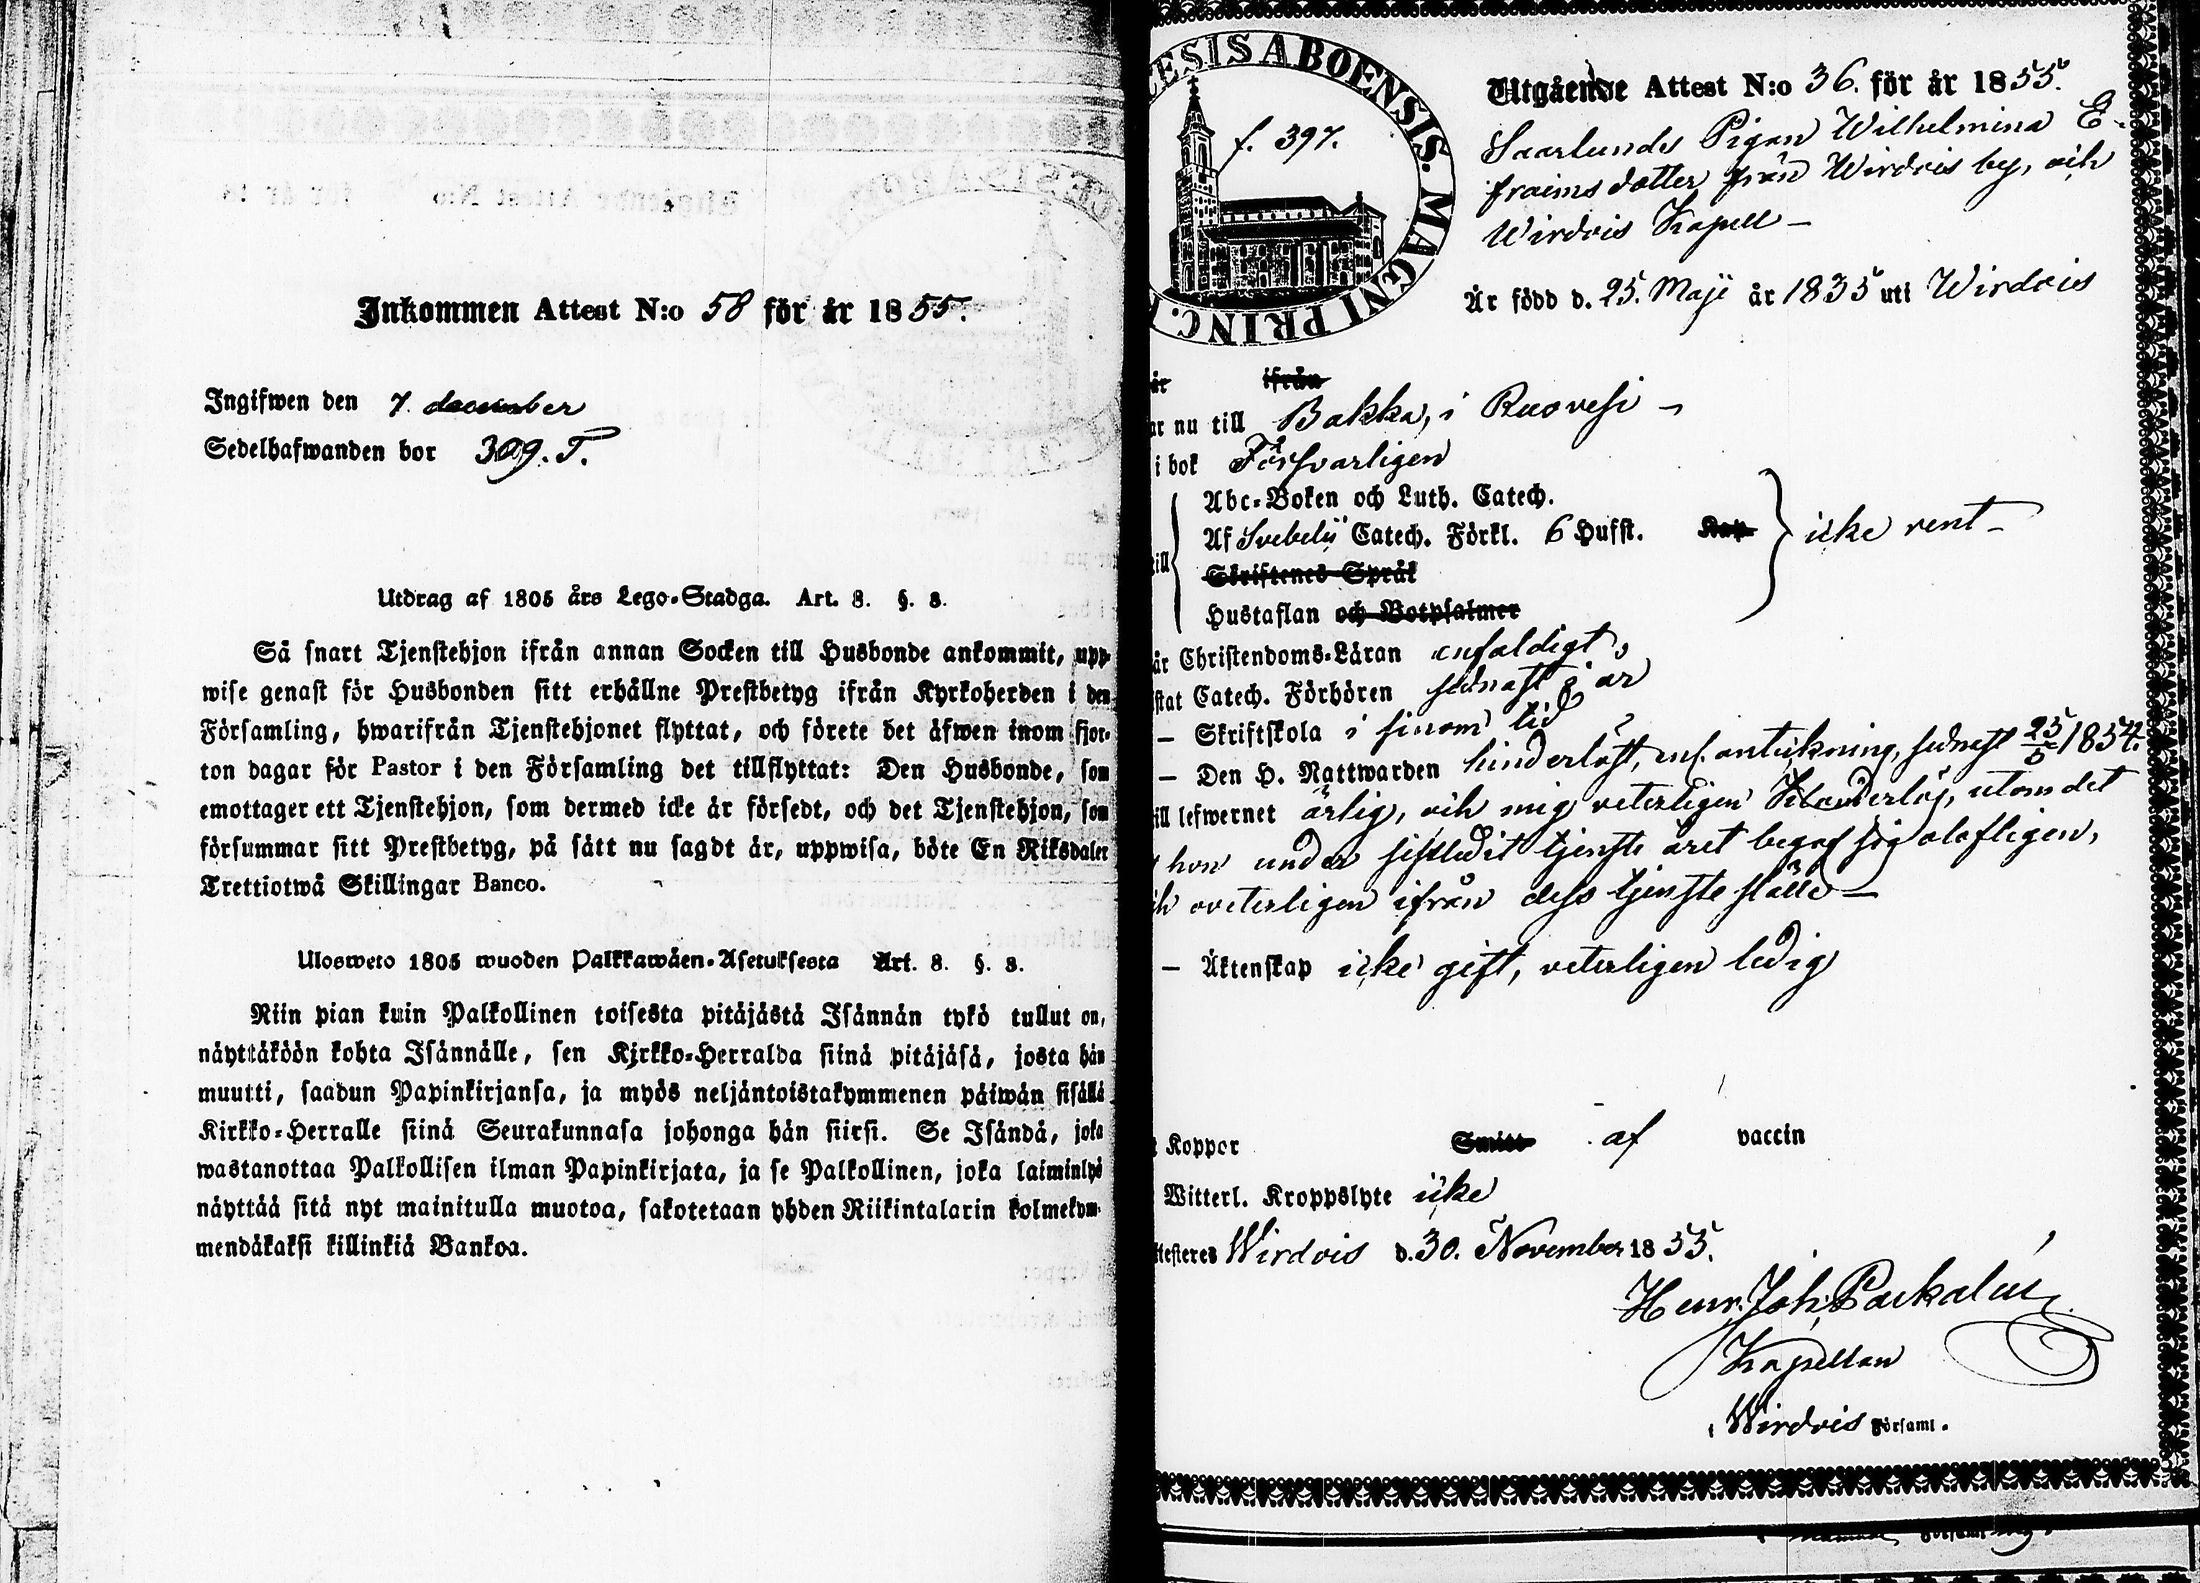 Inkommen Attest N:o 58 för år 1855.
Ingifwen den 7. december
Sedelhafwanden bor 309. T.
Utdrag af 1805 års Lego-Stadga. Art. 8. §. 8.
Så snart Tjenstehjon ifrån annan Socken till Husbonde ankommit, upp-
wise genast för Husbonden sitt erhållne Prestbetyg ifrån Kyrkoherden i den
Församling, hwarifrån Tjenstehjonet flyttat, och förete det äfwen inom fjor-
ton dagar för Pastor i den Församling det tillflyttat: Den Husbonde, som
emottager ett Tjenstehjon, som dermed icke är försedt, och det Tjenstehjon, som
försummar sitt Prestbetyg, på sätt nu sagdt är, uppwisa, böte En Riksdaler
Trettiotwå Skillingar Banco.
Ulosweto 1805 wuoden Palkkawäen-Asetuksesta Art. 8. §. 8.
Niin pian kuin Palkollinen toisesta pitäjästä Isännän tykö tullut on,
näyttäköön kohta Isännälle, sen Kirkko-Herralda siinä pitäjäsä, josta hän
muutti, saadun Papinkirjansa, ja myös neljäntoistakymmenen päiwän sisällä
Kirkko-Herralle siinä Seurakunnasa johonga hän siirsi. Se Isändä, joka
wastanottaa Palkollisen ilman Papinkirjata, ja se Palkollinen, joka laiminlyö
näyttää sitä nyt mainitulla muotoa, sakotetaan yhden Riikintalarin kolmekym-
mendäkaksi killinkiä Bankoa.
ESIS ABOENSIS. MAGNI PRINC.
f. 397.
Utgående Attest N:o 36. för år 1855.
Saarlunds Pigan Wilhelmina E-
fraims dotter från Wirdois by, och
Wirdois Kapell –
Är född d. 25. Maji år 1835 uti Wirdois
är ifrån
ar nu till Bakka, i Ruovesi –
i bok Försvarligen
Abc-Boken och Luth. Catech.
Af Svebelii Catech. Förkl. 6 Hufst. Kap
Skriftenes Språk
Hustaflan och Botpsalmer
icke rent –
är Christendoms-Läran enfaldigt,
stat Catech. Förhören sednast i år
– Skriftskola i sinom tid
– Den H. Nattwarden hinderlöst, enl. anteckning, sednast 25/5 1854.
ill lefwernet ärlig, och mig veterligen klanderlös, utom det
hon under sistledit tjenste året begaf sig olofligen,
ch oveterligen ifrån dess tjenste ställe –
– Äktenskap icke gift, veterligen ledig
t Koppor Smitt af vaccin
Witterl. Kroppslyte icke
ttesteres Wirdois d. 30. November 1855.
Henr. Joh.
Kapellan
i Wirdois Församl.